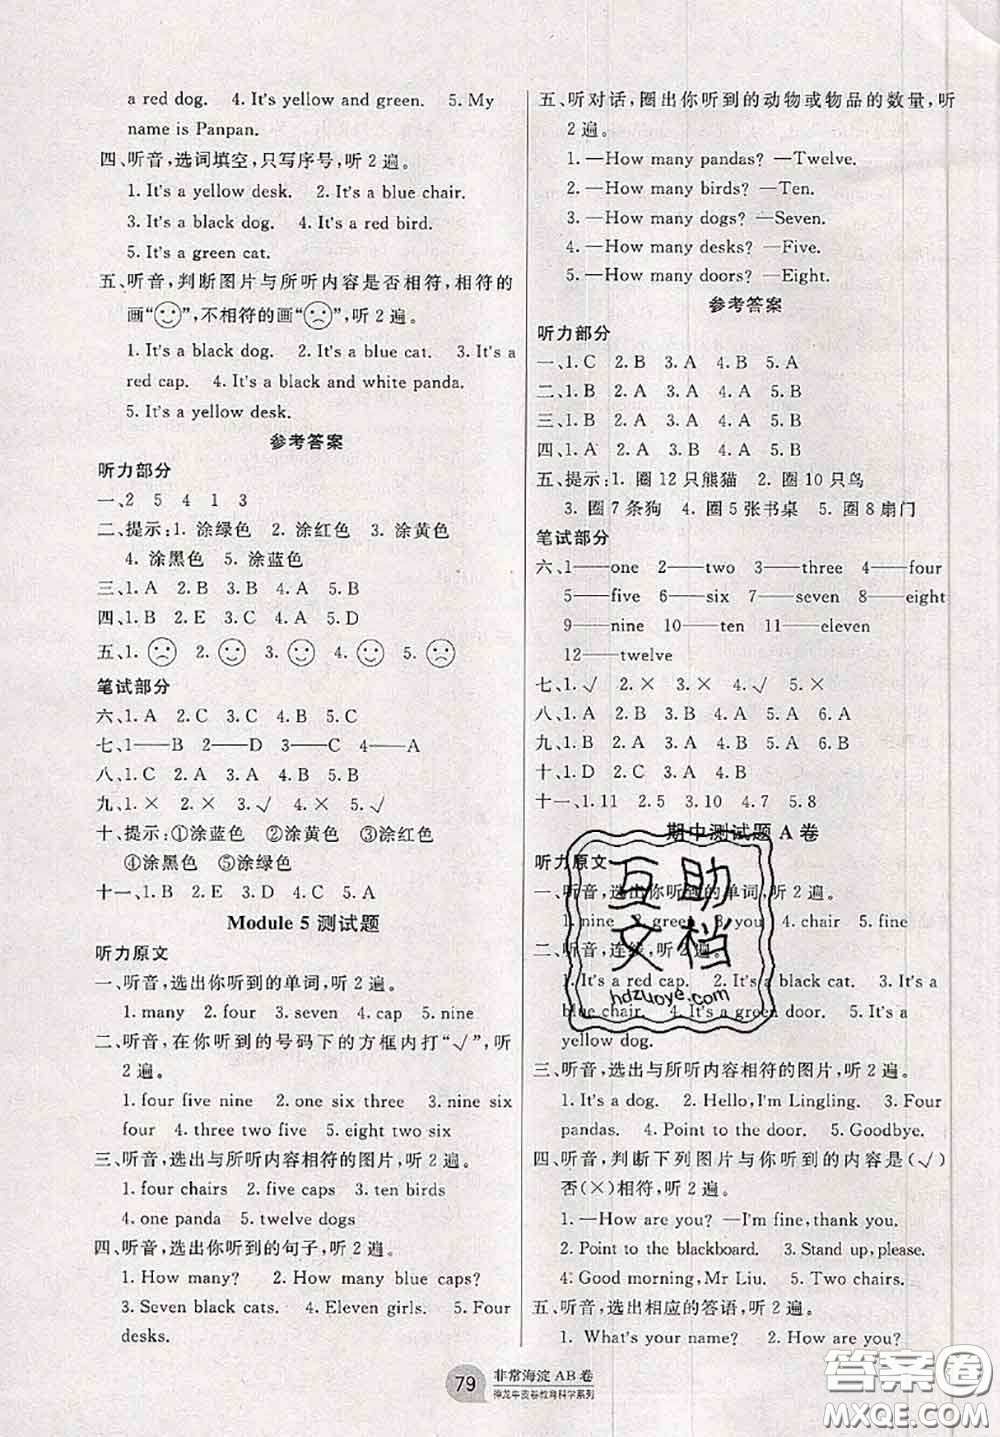 a red dog. 4. It's yellow and green. 5. My
name is Panpan.
四、听音,选词填空,只写序号,听2遍。
1. It's a yellow desk. 2. It's a blue chair.
3. It's a black dog. 4. It's a red bird.
5. It's a green cat.
五、听音,判断图片与所听内容是否相符,相符的
画“”,不相符的画“”,听2遍。
1. It's a black dog. 2. It's a blue cat. 3. It's a
red cap. 4. It's a black and white panda.
5. It's a yellow desk.
参考答案
听力部分
一、2 5 4 1 3
二、提示:1. 涂绿色 2. 涂红色 3. 涂黄色
4. 涂黑色 5. 涂蓝色
三、1. A 2. B 3. B 4. A 5. B
四、1. B 2. C 3. A 4. A 5. D
五、1. 2. 3. 4. 5.
笔试部分
六、1. A 2. C 3. C 4. B 5. C
七、1——B 2——D 3——C 4——A
八、1. C 2. A 3. A 4. B 5. C
九、1. × 2. × 3. √ 4. × 5. √
十、提示:①涂蓝色 ②涂黄色 ③涂红色
④涂黑色 ⑤涂绿色
十一、1. B 2. E 3. D 4. C 5. A
Module 5 测试题
听力原文
一、听音,选出你听到的单词,听2遍。
1. many 2. four 3. seven 4. cap 5. nine
二、听音,在你听到的号码下的方框内打“√”,听
2遍。
1. four five nine 2. one six three 3. nine six
four 4. three two five 5. eight two six
三、听音,选出与所听内容相符的图片,听2遍。
1. four chairs 2. five caps 3. ten birds
4. one panda 5. twelve dogs
四、听音,选出你听到的句子,听2遍。
1. How many? 2. How many blue caps?
3. Seven black cats. 4. Eleven girls. 5. Four
desks.
五、听对话,圈出你听到的动物或物品的数量,听
2遍。
1. —How many pandas? —Twelve.
2. —How many birds? —Ten.
3. —How many dogs? —Seven.
4. —How many desks? —Five.
5. —How many doors? —Eight.
参考答案
听力部分
一、1. C 2. B 3. A 4. B 5. A
二、1. B 2. A 3. A 4. A 5. B
三、1. B 2. A 3. B 4. A 5. B
四、1. A 2. B 3. A 4. A 5. B
五、提示:1. 圈12只熊猫 2. 圈10只鸟
3. 圈7条狗 4. 圈5张书桌 5. 圈8扇门
笔试部分
六、1——one 2——two 3——three 4——four
5——five 6——six 7——seven 8——eight
9——nine 10——ten 11——eleven
12——twelve
七、1. √ 2. × 3. × 4. √ 5. ×
八、1. A 2. B 3. B 4. A 5. A 6. A
九、1. B 2. B 3. A 4. B 5. A 6. B
十、1. D 2. C 3. A 4. B
十一、1. 11 2. 5 3. 10 4. 7 5. 8
期中测试题 A 卷
听力原文
一、听音,选出你听到的单词,听2遍。
1. nine 2. green 3. you 4. chair 5. fine
二、听音,连线,听2遍。
1. It's a red cap. 2. It's a black cat. 3. It's a
blue chair. 4. It's a green door. 5. It's a
yellow dog.
三、听音,选出与所听内容相符的图片,听2遍。
1. It's a dog. 2. Hello, I'm Lingling. 3. Four
pandas. 4. Point to the door. 5. Goodbye.
四、听音,判断下列图片与你听到的内容是(√)
否(×)相符,听2遍。
1. —How are you? —I'm fine, thank you.
2. Point to the blackboard. 3. Stand up, please.
4. Good morning, Mr Liu. 5. Two chairs.
五、听音,选出相应的答语,听2遍。
1. What's your name? 2. How are you?
互助
文档
hdzuoye.com
79
非常海淀AB卷
神龙牛皮卷教育科学系列
答案圈
MXQE.COM